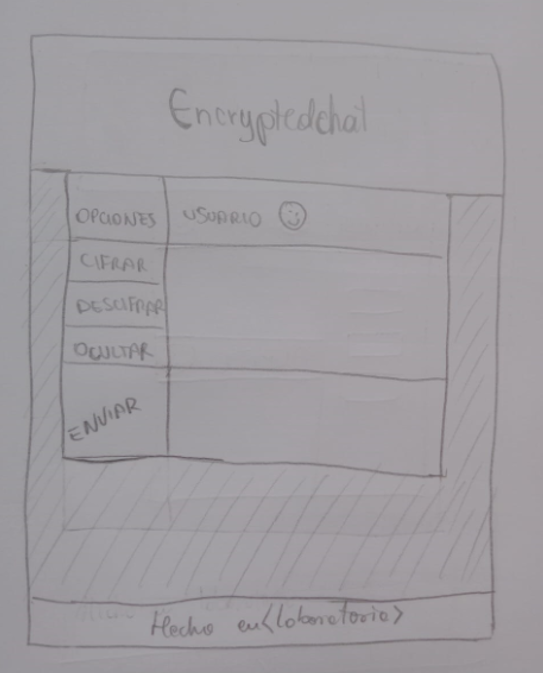 Encryptedchat
OPCIONES USUARIO
CIFRAR
DESCIFRAR
OCULTAR
ENVIAR
Hecho en <laboratorio>